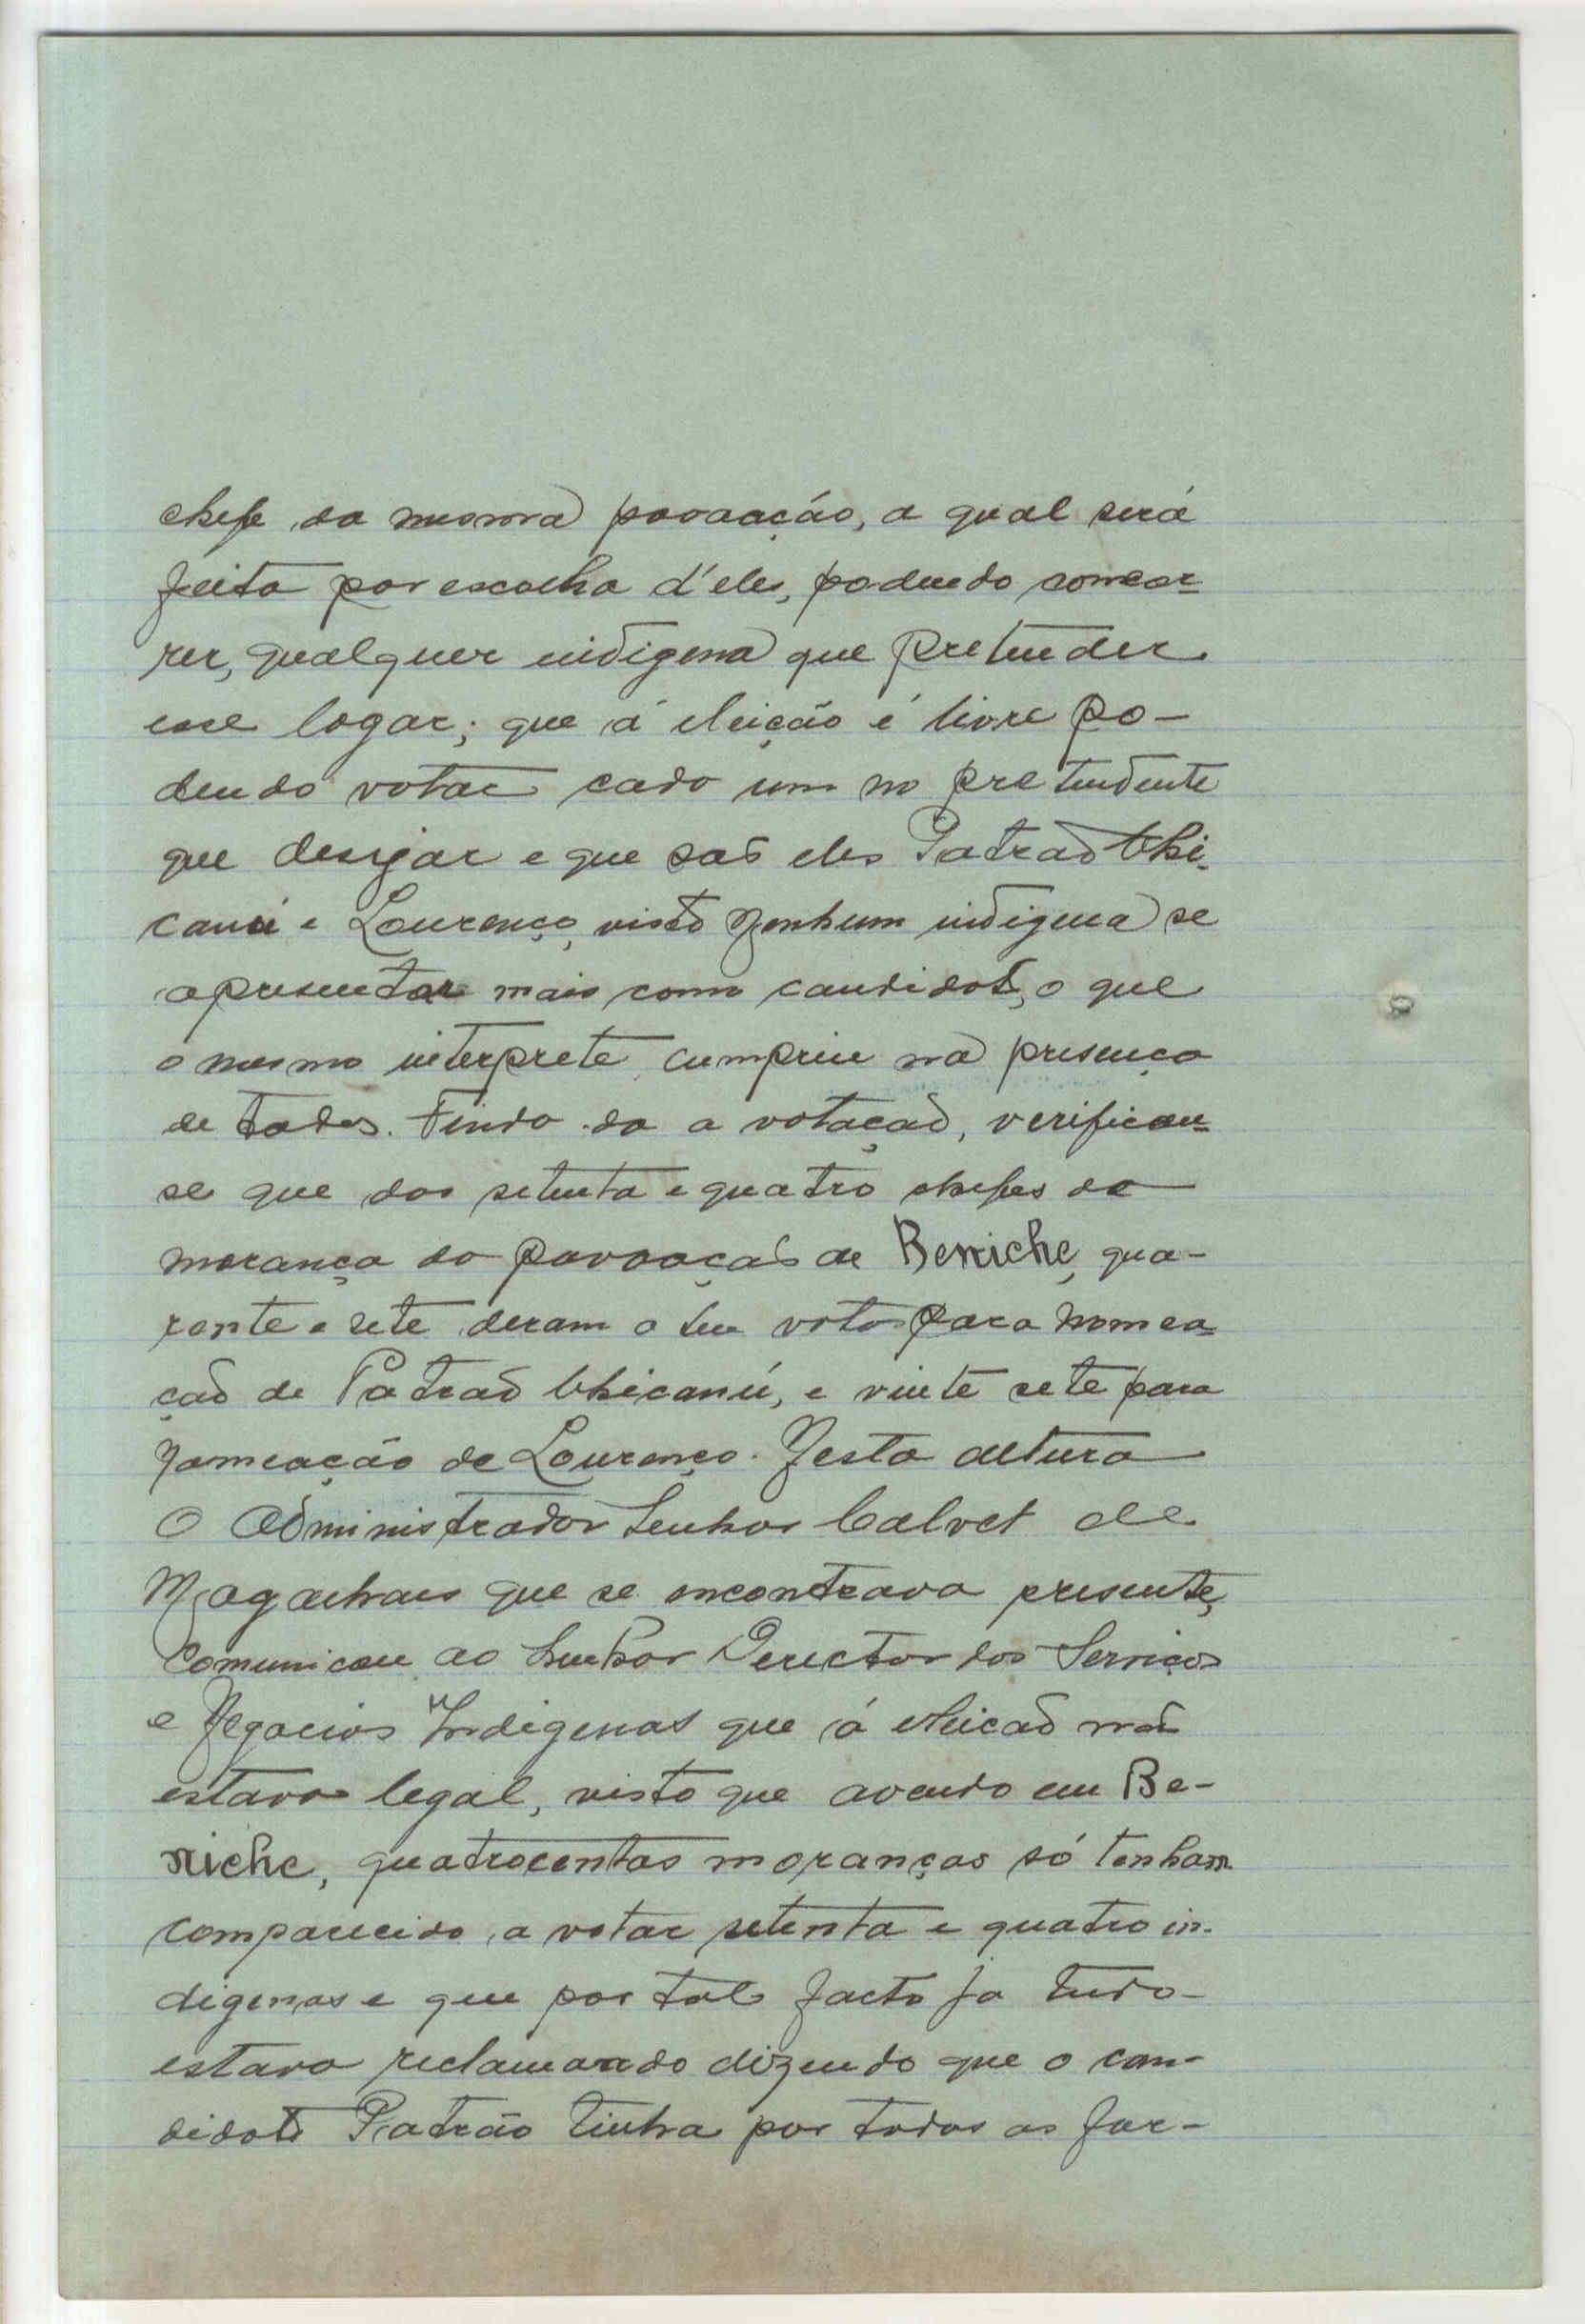 chefe da mesma povoação, a qual será
feita por escolha d'eles, podendo concor=
rer, qualquer indigena que pretender
esse logar; que á eleição é livre po-
dendo votar cada um no pretendente
que desejar e que saõ eles Patraõ Chi-
canú e Lourenço, visto nenhum indigena se
apresentar mais como candidato, o que
o mesmo interprete cumpriu na presença
de todos. Findo da a votaçaõ, verificou=
se que dos setenta e quatro chefes da
morança da povoaçaõ de Beniche, qua-
renta e sete deram o seu voto para nomea=
çaõ de Patraõ Chicanú, e vinte sete para
nomeação de Lourenço. Nesta altura
O Administrador Senhor Calvet de
Magalhaes que se encontrava presente,
comunicou ao Senhor Derector dos Serviços
e Negocios Indigenas que á eleicaõ naõ
estava legal, visto que avendo em Be-
niche, quatrocentas moranças só tenham
comparecido a votar setenta e quatro in-
digenas e que por tal facto ja tudo
estava reclamando dizendo que o can-
didato Patrão tinha por todas as for-